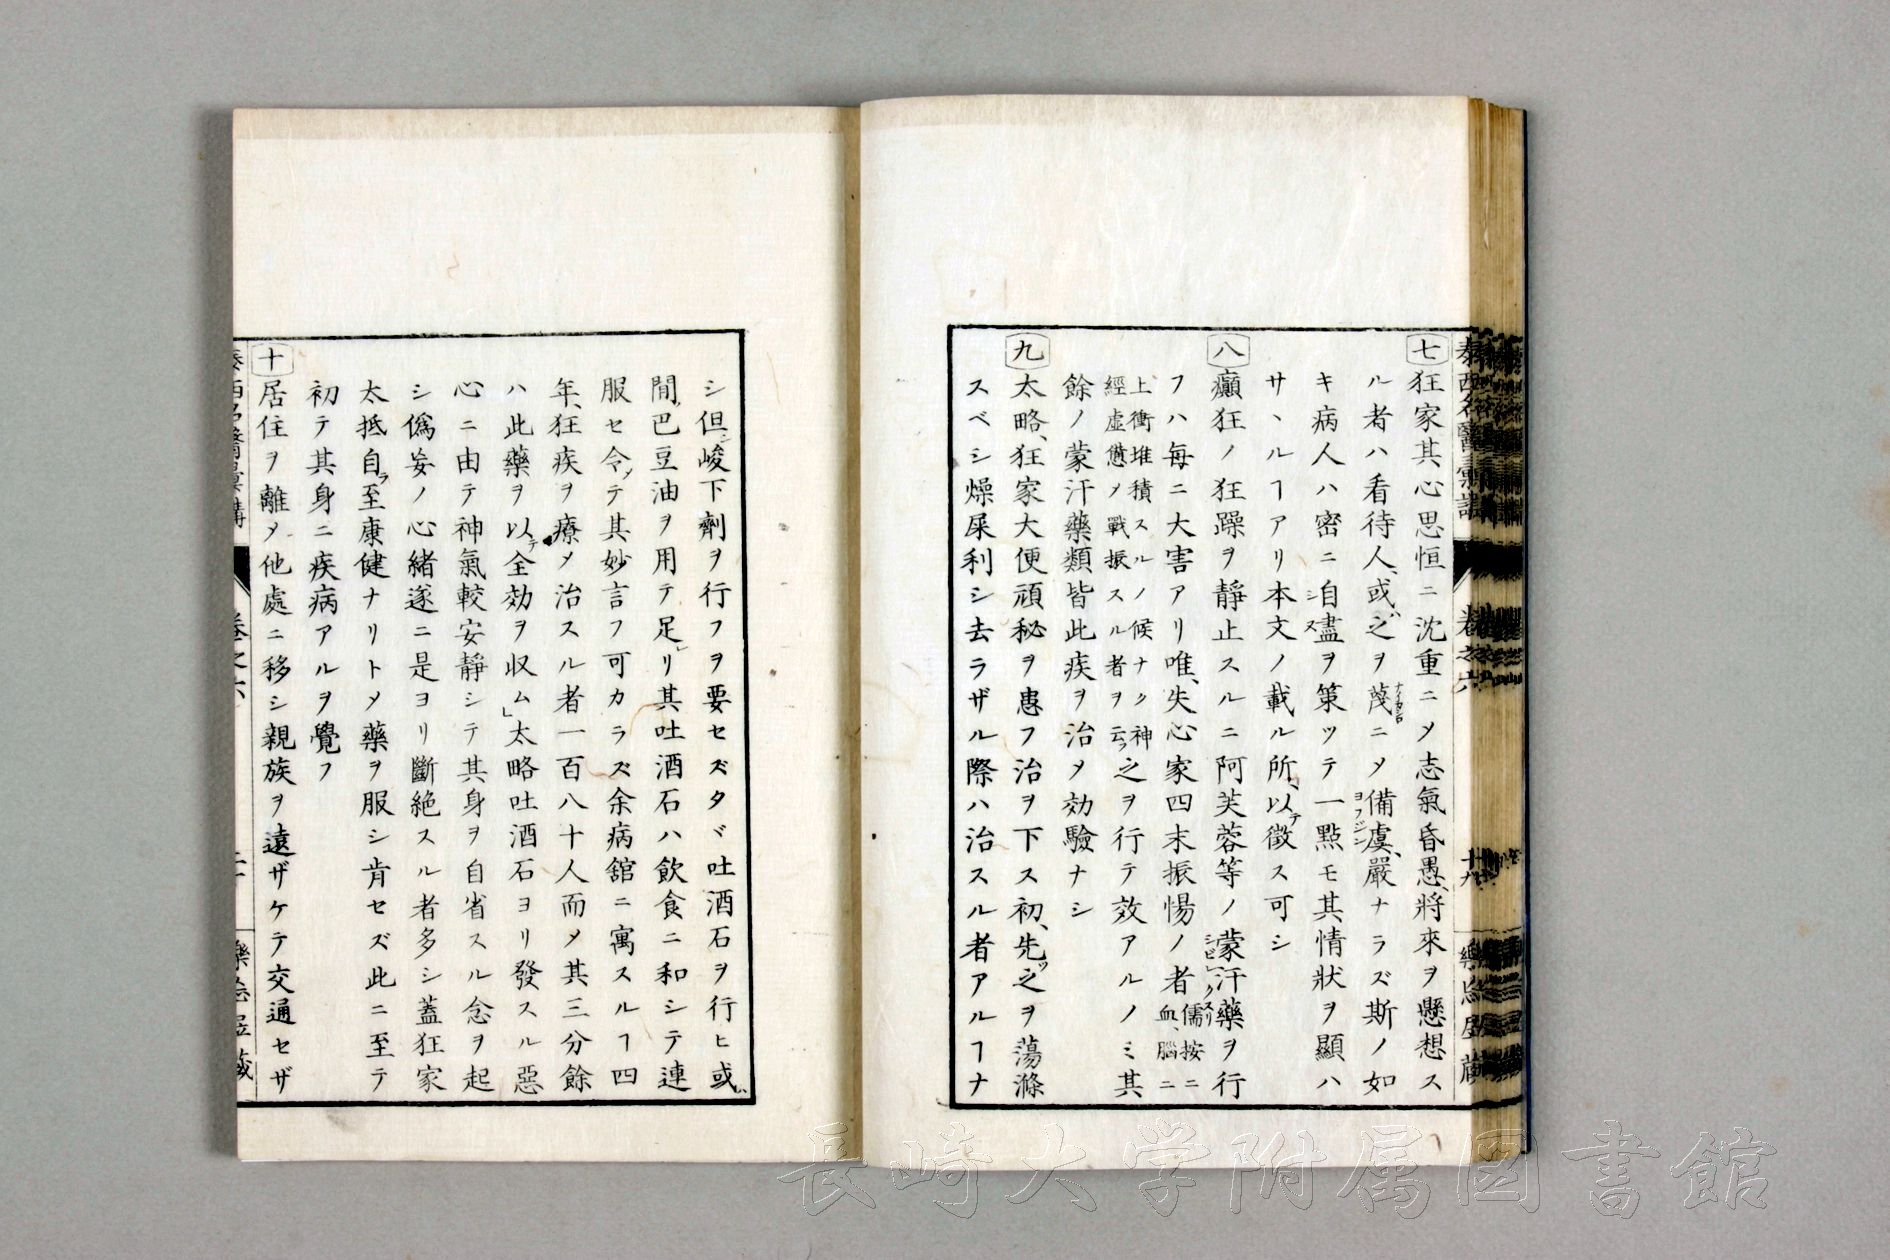 七
狂家其心思恒ニ沈重ニメ志氣昏愚、將來ヲ懸想ス
ル者ハ看待人、或ハ之ヲ蔑ニメ備虞、嚴ナラズ斯ノ如
キ病人ハ密ニ自盡ヲ策ツテ一點モ其情狀ヲ顯ハ
サヽルヿアリ本文ノ載ル所、以テ徵ス可シ
八
癲狂ノ狂躁ヲ靜止スルニ阿芙蓉等ノ蒙汗藥ヲ行
フハ每ニ大害アリ唯、失心家四末振惕ノ者儒按ニ血、腦ニ
上衝堆積スルノ候ナク神經虛憊メ戰振スル者ヲ云フ之ヲ行テ效アルノミ其
餘ノ蒙汗藥類皆此疾ヲ治メ効驗ナシ
九
太略、狂家大便頑秘ヲ患フ治ヲ下ス初、先ツ之ヲ蕩滌
スベシ燥屎利シ去ラザル際ハ治スル者アルヿナ
シ但シ峻下劑ヲ行フヲ要セズタヾ吐酒石ヲ行ヒ或ハ
間、巴豆油ヲ用テ足レリ其吐酒石ハ飲食ニ和シテ連
服セ令メテ其妙言フ可カラズ余病舘ニ寓スルヿ四
年、狂疾ヲ療メ治スル者一百八十人而メ其三分餘
ハ此藥ヲ以テ全効ヲ収ム」太略吐酒石ヨリ發スル惡
心ニ由テ神氣較安靜シテ其身ヲ自省スル念ヲ起
シ僞妄ノ心緒遂ニ是ヨリ斷絶スル者多シ蓋狂家
太抵自ラ至康健ナリトメ藥ヲ服シ肯セズ此ニ至テ
初テ其身ニ疾病アルヲ覺フ
十
居住ヲ離メ他處ニ移シ親族ヲ遠ザケテ交通セザ
長崎大学附属図書館